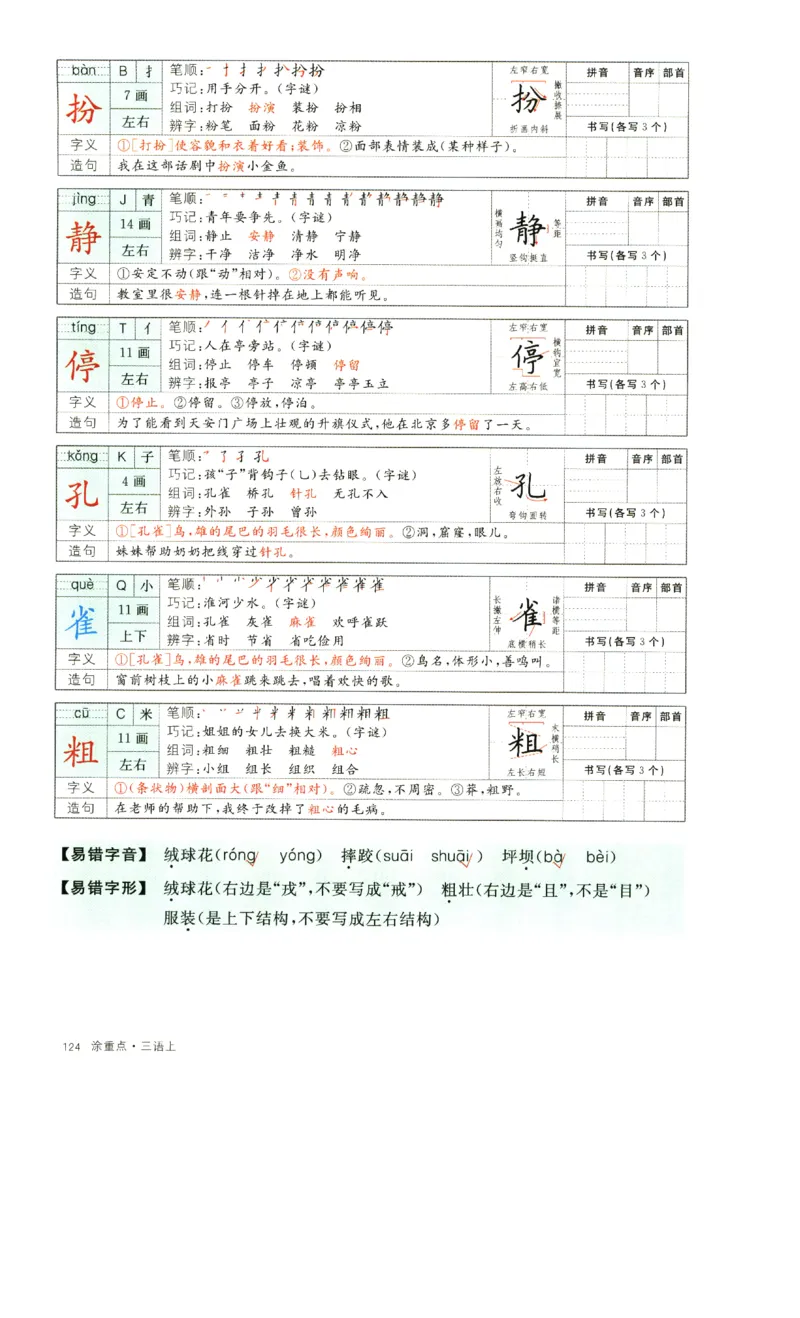 bàn B 扌 笔顺: 左窄右宽 拼音 音序 部首
扮 7画 巧记:用手分开。(字谜) 扮 撇收捺展
左右 组词:打扮 扮演 装扮 扮相
辨字:粉笔 面粉 花粉 凉粉 折画内斜 书写(各写3个)
字义 ①[打扮]使容貌和衣着好看;装饰。②面部表情装成(某种样子)。
造句 我在这部话剧中扮演小金鱼。
jìng J 青 笔顺: 拼音 音序 部首
静 14画 巧记:青年要争先。(字谜) 横画均匀 静 等距
左右 组词:静止 安静 清静 宁静
辨字:干净 洁净 净水 明净 竖钩挺直 书写(各写3个)
字义 ①安定不动(跟“动”相对)。②没有声响。
造句 教室里很安静,连一根针掉在地上都能听见。
tíng T 亻 笔顺: 左窄右宽 拼音 音序 部首
停 11画 巧记:人在亭旁站。(字谜) 停 横钩宜宽
左右 组词:停止 停车 停顿 停留
辨字:报亭 亭子 凉亭 亭亭玉立 左高右低 书写(各写3个)
字义 ①停止。②停留。③停放,停泊。
造句 为了能看到天安门广场上壮观的升旗仪式,他在北京多停留了一天。
kǒng K 子 笔顺: 拼音 音序 部首
孔 4画 巧记:孩“子”背钩子(乚)去钻眼。(字谜) 左放右收 孔
左右 组词:孔雀 桥孔 针孔 无孔不入
辨字:外孙 子孙 曾孙 弯钩圆转 书写(各写3个)
字义 ①[孔雀]鸟,雄的尾巴的羽毛很长,颜色绚丽。②洞,窟窿,眼儿。
造句 妹妹帮助奶奶把线穿过针孔。
què Q 小 笔顺: 拼音 音序 部首
雀 11画 巧记:淮河少水。(字谜) 长撇左伸 雀 诸横等距
上下 组词:孔雀 灰雀 麻雀 欢呼雀跃
辨字:省时 节省 省吃俭用 底横稍长 书写(各写3个)
字义 ①[孔雀]鸟,雄的尾巴的羽毛很长,颜色绚丽。②鸟名,体形小,善鸣叫。
造句 窗前树枝上的小麻雀跳来跳去,唱着欢快的歌。
cū C 米 笔顺: 左窄右宽 拼音 音序 部首
粗 11画 巧记:姐姐的女儿去换大米。(字谜) 粗 末横稍长
左右 组词:粗细 粗壮 粗糙 粗心
辨字:小组 组长 组织 组合 左长右短 书写(各写3个)
字义 ①(条状物)横剖面大(跟“细”相对)。②疏忽,不周密。③莽,粗野。
造句 在老师的帮助下,我终于改掉了粗心的毛病。
【易错字音】 绒球花(róng yóng) 摔跤(suāi shuāi) 坪坝(bà bèi)
【易错字形】 绒球花(右边是“戎”,不要写成“戒”) 粗壮(右边是“且”,不是“目”)
服装(是上下结构,不要写成左右结构)
124 涂重点·三语上